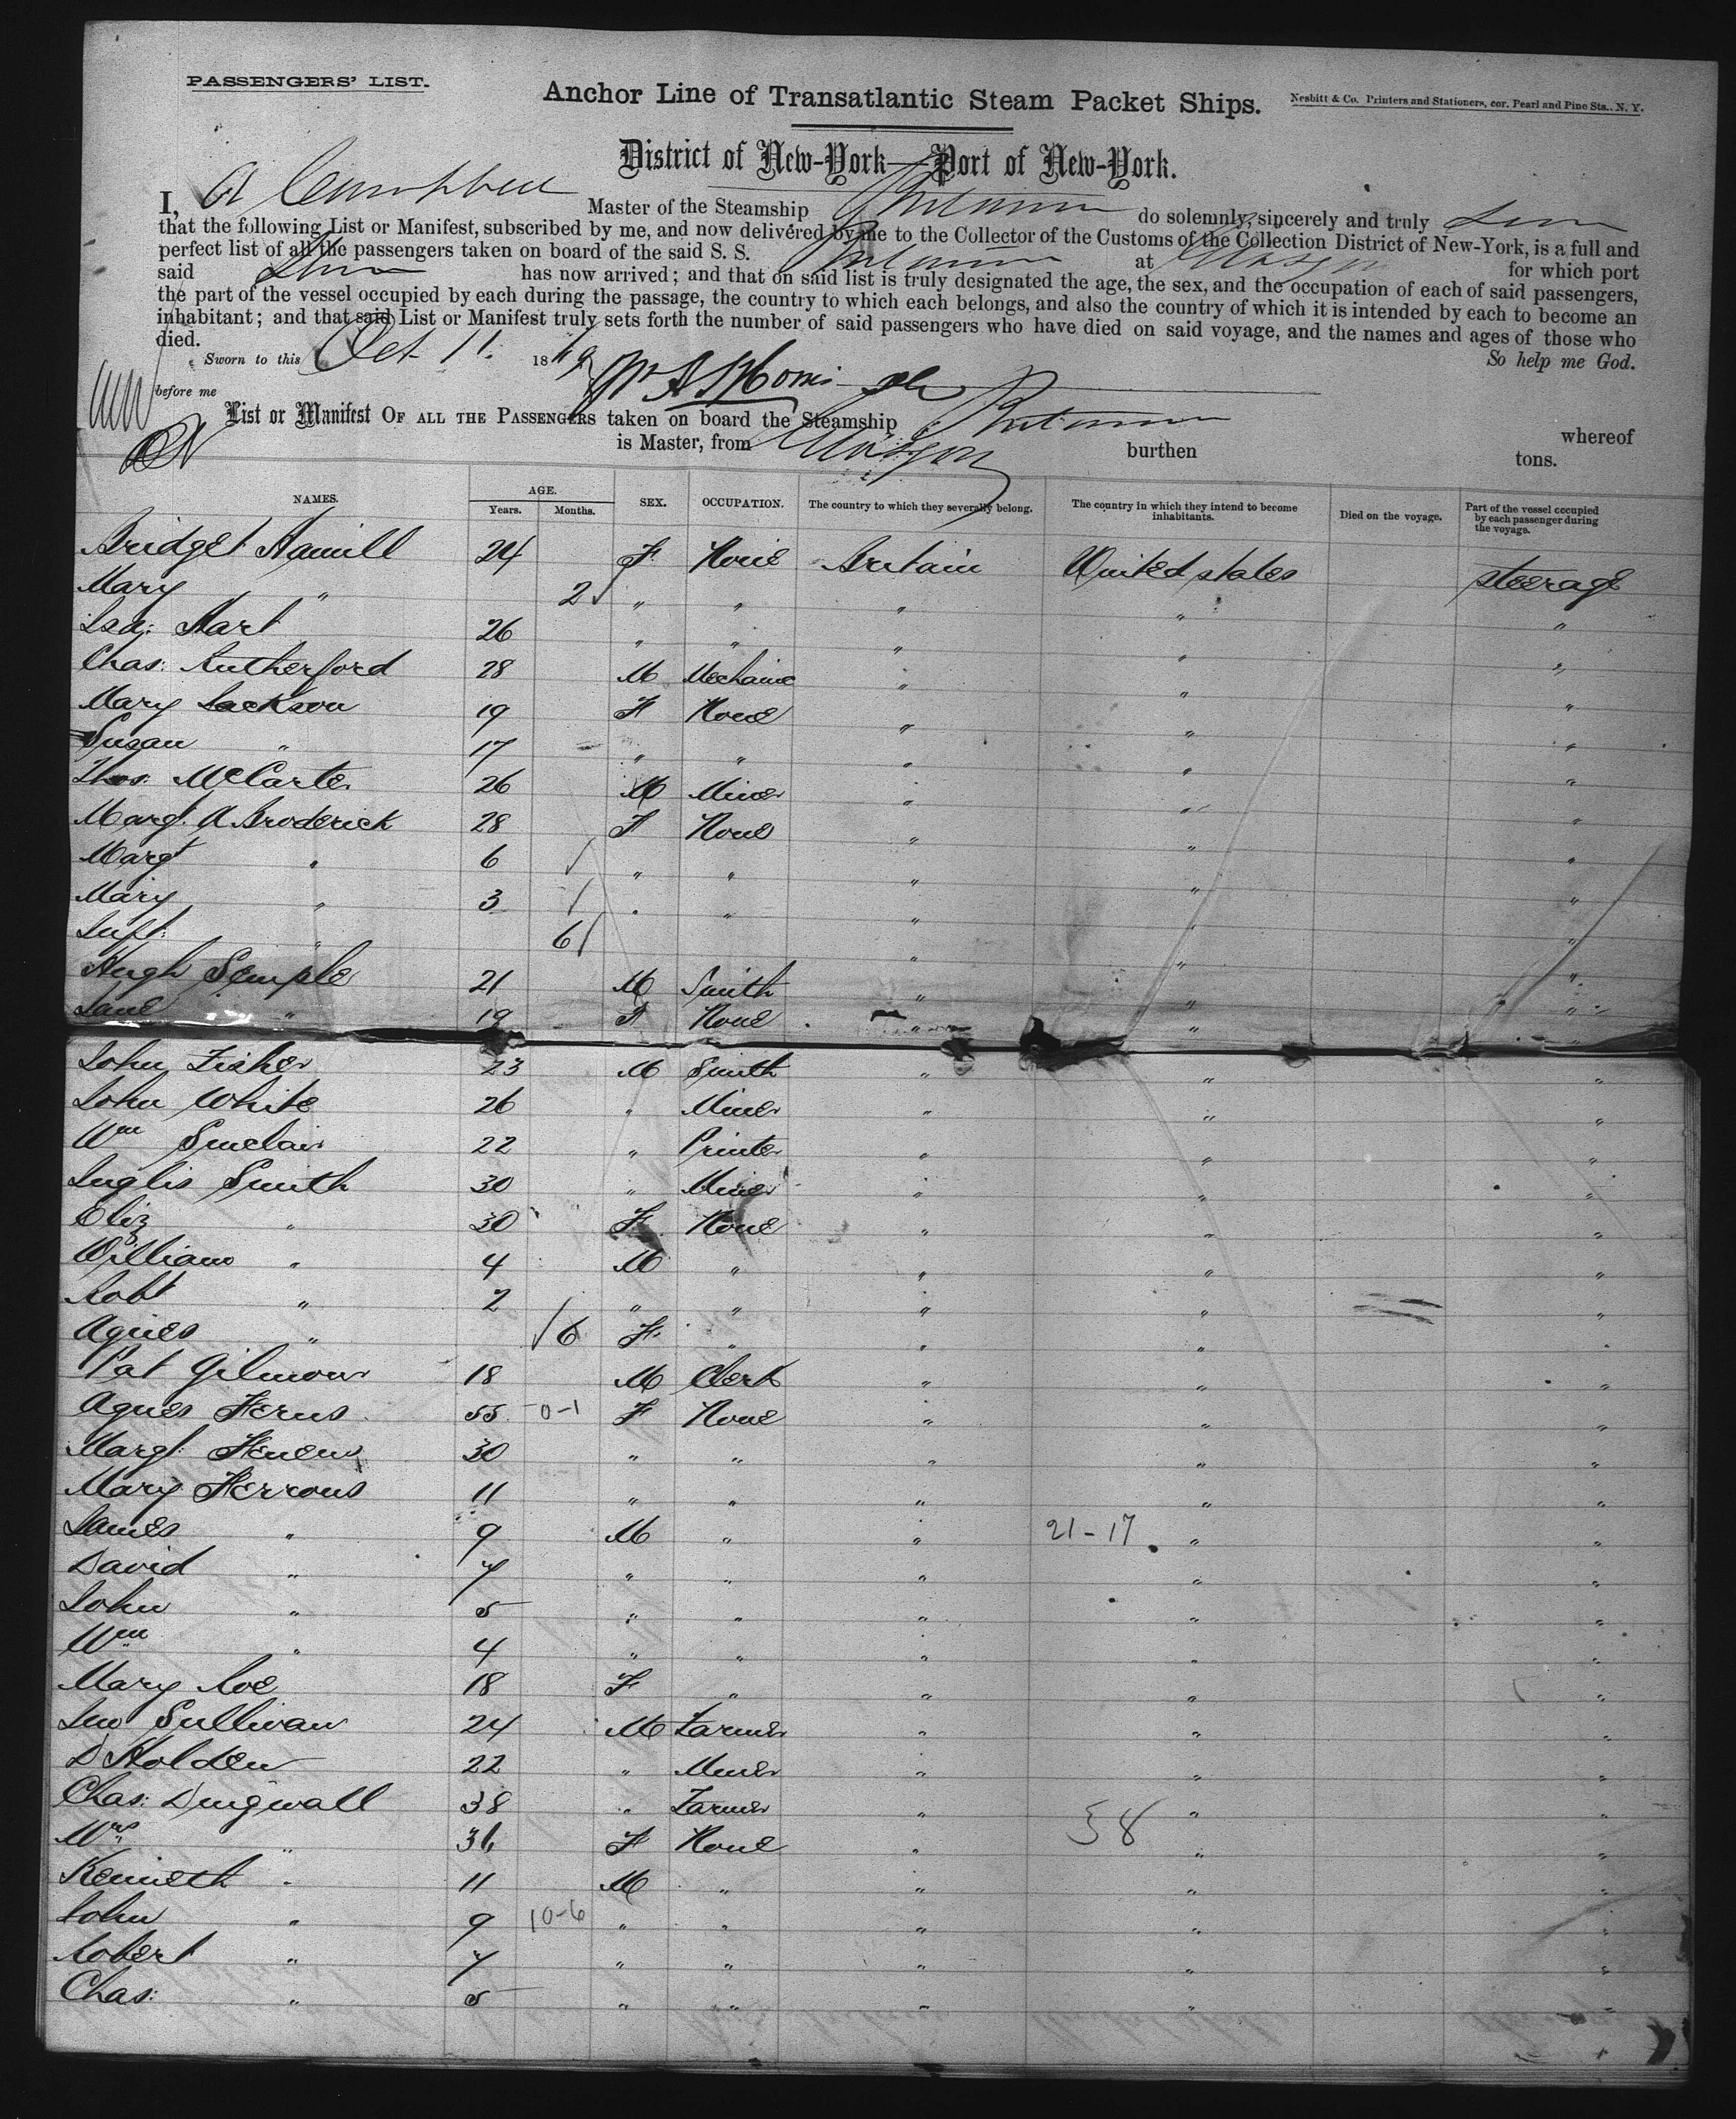 PASSENGERS' LIST.
Anchor Line of Transatlantic Steam Packet Ships.
Nesbitt & Co. Printers and Stationers, cor. Pearl and Pine Sts., N. Y.
District of New-York—Port of New-York.
I, A Campbell Master of the Steamship Britannia do solemnly, sincerely and truly
that the following List or Manifest, subscribed by me, and now delivered by me to the Collector of the Customs of the Collection District of New-York, is a full and
perfect list of all the passengers taken on board of the said S. S. Britannia at Glasgow for which port
said has now arrived; and that on said list is truly designated the age, the sex, and the occupation of each of said passengers,
the part of the vessel occupied by each during the passage, the country to which each belongs, and also the country of which it is intended by each to become an
inhabitant; and that said List or Manifest truly sets forth the number of said passengers who have died on said voyage, and the names and ages of those who
died. So help me God.
Sworn to this Oct 11. 1869
before me
List or Manifest OF ALL THE PASSENGERS taken on board the Steamship Britannia whereof
is Master, from Glasgow burthen tons.
NAMES. AGE. Years. Months. SEX. OCCUPATION. The country to which they severally belong. The country in which they intend to become inhabitants. Died on the voyage. Part of the vessel occupied by each passenger during the voyage.
Bridget Hamill 24 F None Britain United States steerage
Mary " 2 " " " " "
Isa: Hart 26 " " " " "
Chas: Rutherford 28 M Mechanic " " "
Mary Jackson 19 F None " " "
Susan " 17 " " " " "
Thos: McCarter 26 M Miner " " "
Margt. A Broderick 28 F None " " "
Margt " 6 " " " " "
Mary " 3 " " " " "
Inft: " 6 " " "
Hugh Semple 21 M Smith " " "
Jane " 19 F None " " "
John Fisher 23 M Smith " " "
John White 26 " Miner " " "
Wm Sinclair 22 " Printer " " "
Inglis Smith 30 " Miner " " "
Eliz " 30 F None " " "
William " 4 M " " " "
Robt " 2 " " " " "
Agnes " 6 F " " " "
Pat Gilmour 18 M Clerk " " "
Agnes Ferns 55 0-1 F None " " "
Margt: 30 " " " " "
Mary Ferrous 11 " " " " "
James " 9 M " " 21-17 " "
David " 7 " " " " "
John " 5 " " " " "
Wm " 4 " " " " "
Mary Roe 18 F " " " "
Jno Sullivan 24 M Farmer " " "
D Holden 22 " Miner " " "
Chas: Dingwall 38 " Farmer " " "
Mrs " 36 F None " 58 " "
Kenneth " 11 M " " " "
John " 9 10-6 " " " " "
Robert " 7 " " " " "
Chas: " 5 " " " " "